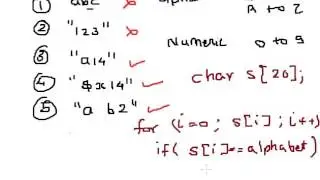 ① "abc" ✗ alpha A to Z
② "123" ✗ Numeric 0 to 9
③ "a14" ✓
④ "$x14" ✓ char s[20];
⑤ "a b2" ✓
for (i=0; s[i]; i++)
if( s[i]==alphabet)